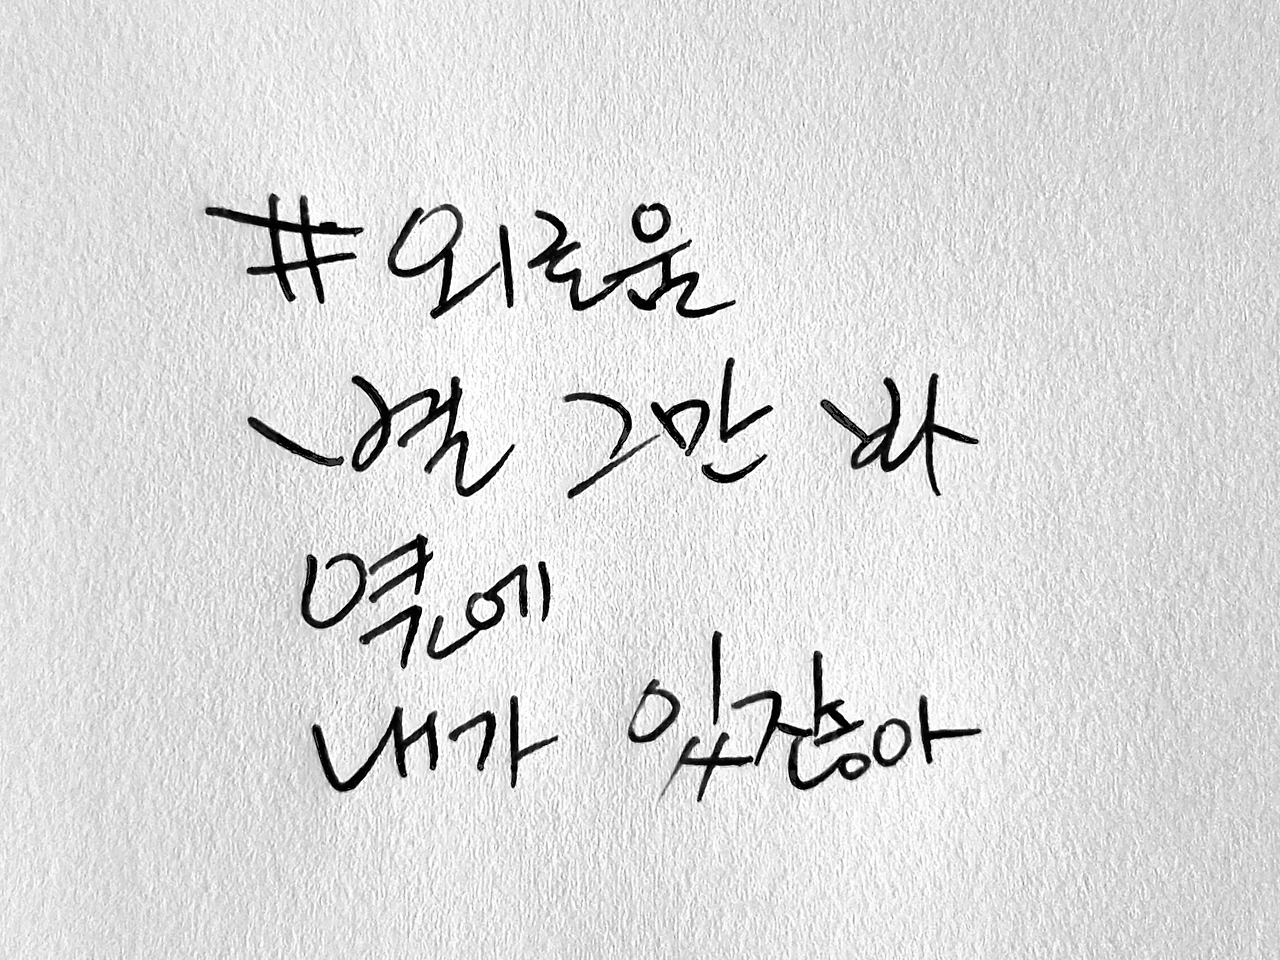 #외로움
별 그만 봐
옆에
내가 있잖아